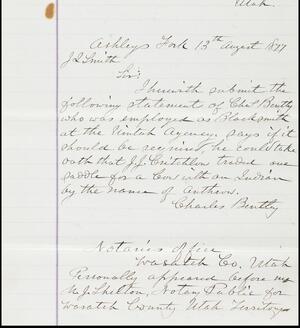 Utah.
Ashleys Fork 13th August 1877
J Q Smith
Sir:
I herewith submit the
following statement of Chas Bently
who was employed as Blacksmith
at the Uintah Agency. says if it
should be required, he could take
oath that J.J. Critchlow traded one
saddle for a Cow with an Indian
by the name of Anthrow.
Charles Bently
Notaries Office
Wasatch Co. Utah
Personally appeared before me
J Shelton, Notary Public for
Wasatch County Utah Territory